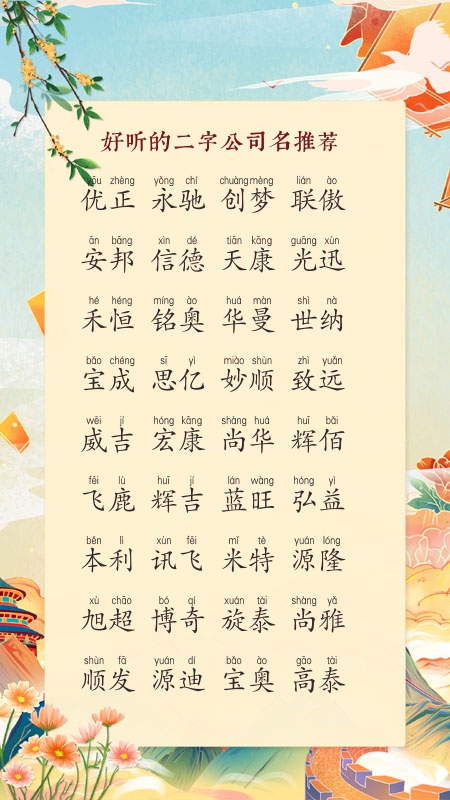 好听的二字公司名推荐
yōu zhèng yǒng chí chuàng mèng lián ào
优正 永驰 创梦 联傲
ān bāng xìn dé tiān kāng guāng xùn
安邦 信德 天康 光迅
hé héng míng ào huá màn shì nà
禾恒 铭奥 华曼 世纳
bǎo chéng sī yì miào shùn zhì yuǎn
宝成 思亿 妙顺 致远
wēi jí hóng kāng shàng huá huī bǎi
威吉 宏康 尚华 辉佰
fēi lù huī jí lán wàng hóng yì
飞鹿 辉吉 蓝旺 弘益
běn lì xùn fēi mǐ tè yuán lóng
本利 讯飞 米特 源隆
xù chāo bó qí xuán tài shàng yǎ
旭超 博奇 旋泰 尚雅
shùn fā yuán dí bǎo ào gāo tài
顺发 源迪 宝奥 高泰